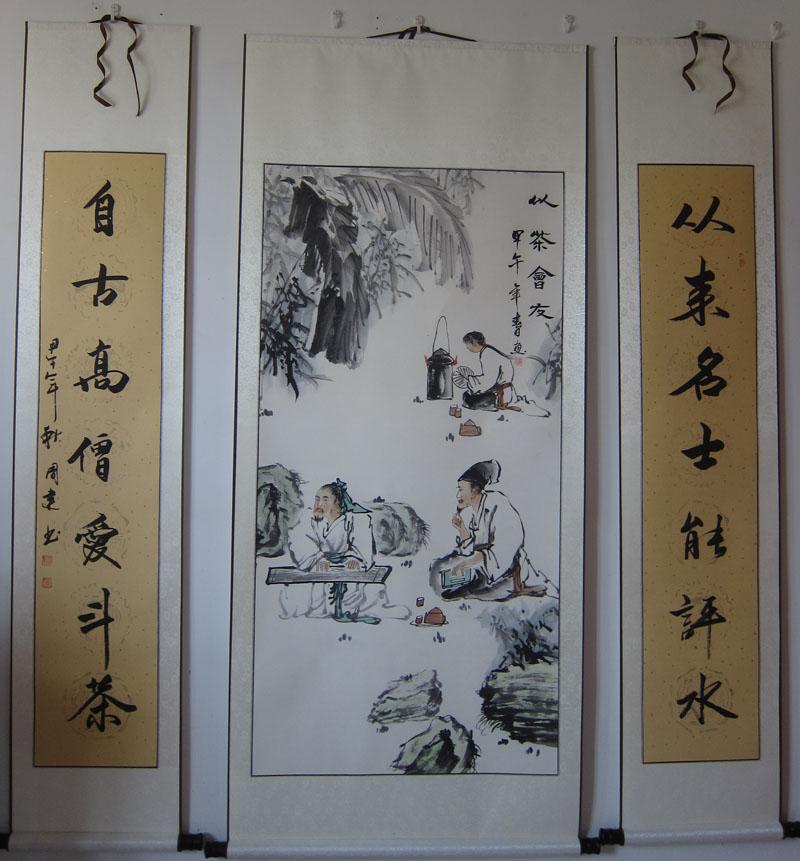 从来名士能評水
以茶會友
甲午年
自古高僧愛斗茶
甲午年秋周